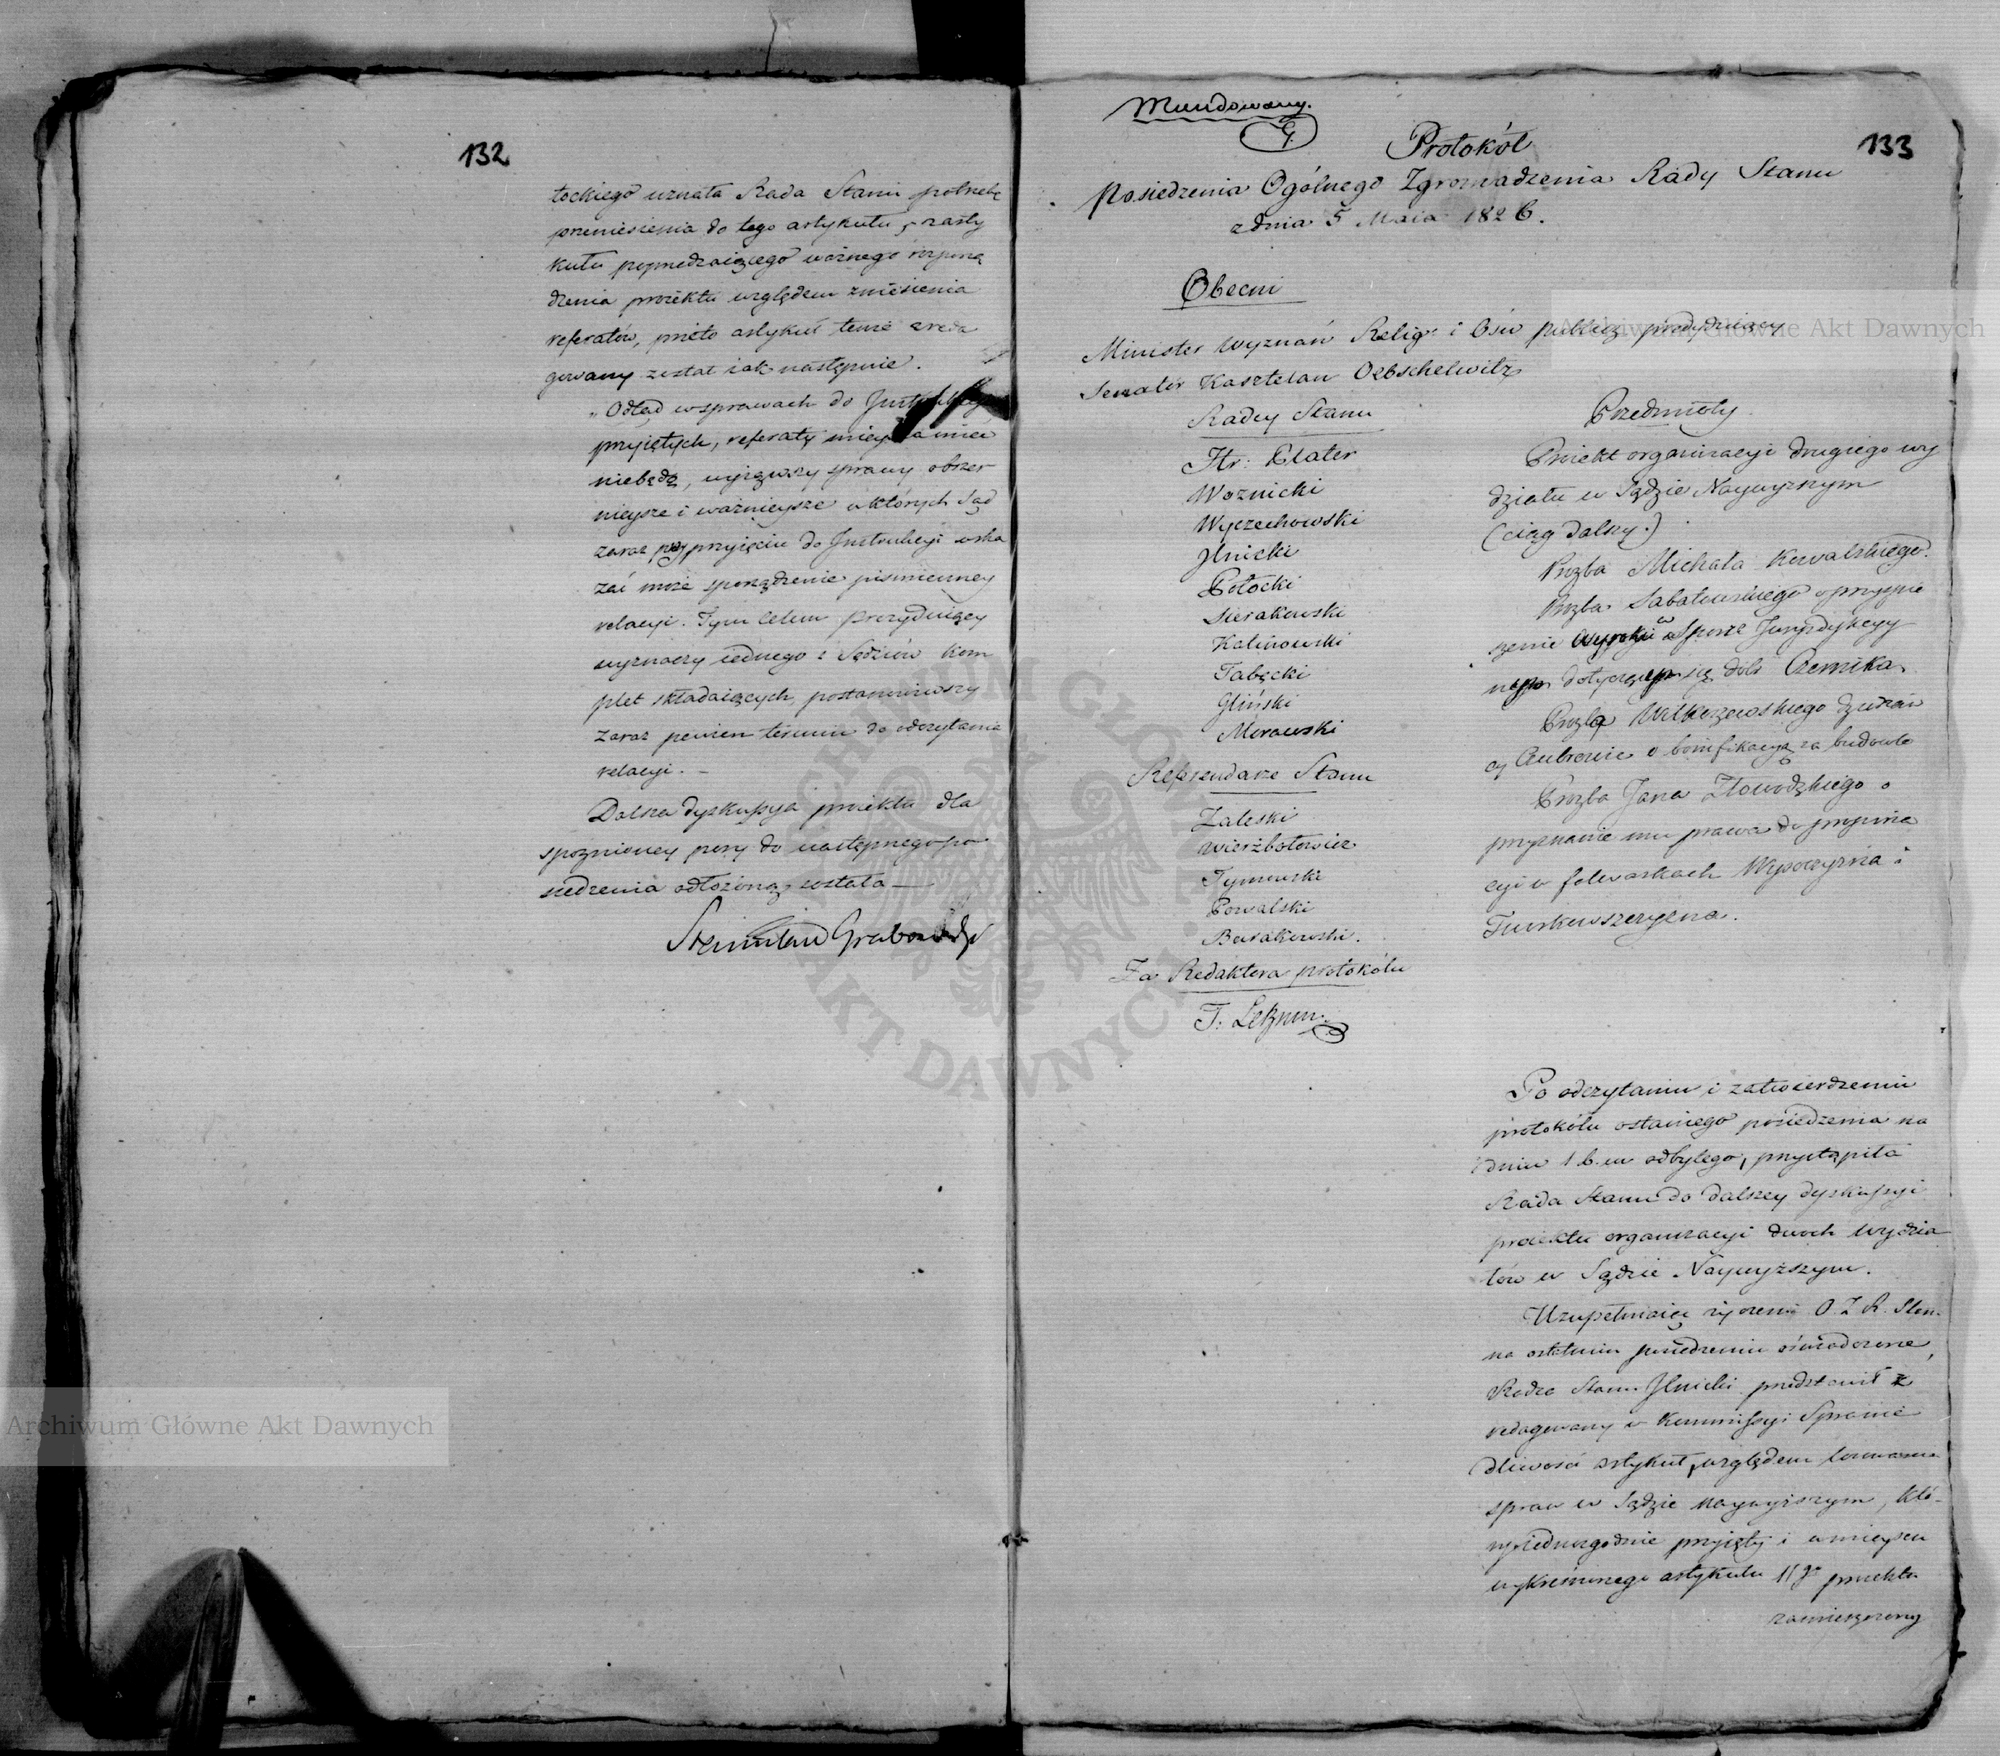 132
tockiego uznała Rada Stanu potrzebę
przeniesienia do tego artykułu, z arty
kułu poprzedzaiącego ważnego rozporzą
dzenia proiektu względem zniesienia
referatów, przeto artykuł tenże zreda
gowany został iak następuie.
„Odtąd w sprawach do Instrukcyi
przyiętych, referaty mieysca mieć
niebędą, wyiąwszy sprawy obszer
nieysze i ważnieysze w których Sąd
zaraz przy przyięciu do Instrukcyi wska
zać może sporządzenie piśmienney
relacyi. Tym celem prezyduiący
wyznaczy iednego z Sędziów kom
plet składaiących, postanowiwszy
zaraz pewien termin do odczytania
relacyi. —
Dalsza dyskussya proiektu dla
spoznioney pory do następnego po
siedzenia odłożoną została —
Stanisław Grabowski
Mundowany.
133
Protokół
Posiedzenia Ogólnego Zgromadzenia Rady Stanu
z dnia 5 Maia 1826.
Obecni
Minister Wyznań Relig: i Ośw publicz prezyduiący
Senator Kasztelan Oebschelwitz
Radcy Stanu
Htr: Plater
Woznicki
Wyczechowski
Ilnicki
Potocki
Sierakowski
Kalinowski
Tabęcki
Gliński
Morawski
Referendarze Stanu
Zaleski
Wierzbołowicz
Tymowski
Kowalski
Za Redaktora protokółu
Przedmioty
Proiekt organizacyi drugiego wy
działu w Sądzie Naywyższym
(ciąg dalszy.)
Prozba Michała Kowalskiego.
Prozba Sabatowskiego o przyspie
szenie wyroku w Sporze Jurysdykcyy
nym dotyczącym się dóbr Czernika
Prozba Wilkrzewskiego dzierżaw
cy Czubrowic o bonifikacyą za budowle
Prozba Jana Złowodzkiego o
przyznanie mu prawa do propina
cyi w folwarkach Wypoczyszna i
Turkowszczyzna.
Po odczytaniu i zatwierdzeniu
protokółu ostatniego posiedzenia na
dniu 1 b. m odbytego, przystąpiła
Rada Stanu do dalszey dyskussyi
proiektu organizacyi dwoch wydzia
łów w Sądzie Naywyższym.
Uzupełniaiąc życzenie O. Z. R. Stan.
na ostatnim posiedzeniu oświadczone,
Radca Stanu Ilnicki przedstawił z
redagowany w Kommissyi Sprawie
dliwości artykuł, względem losowania
spraw w Sądzie Naywyższym, któ-
ry iednozgodnie przyięty i w mieyscu
wykreślonego artykułu 11go proiektu
zamieszczony
Archiwum Główne Akt Dawnych
Archiwum Główne Akt Dawnych
ARCHIWUM GŁÓWNE AKT DAWNYCH